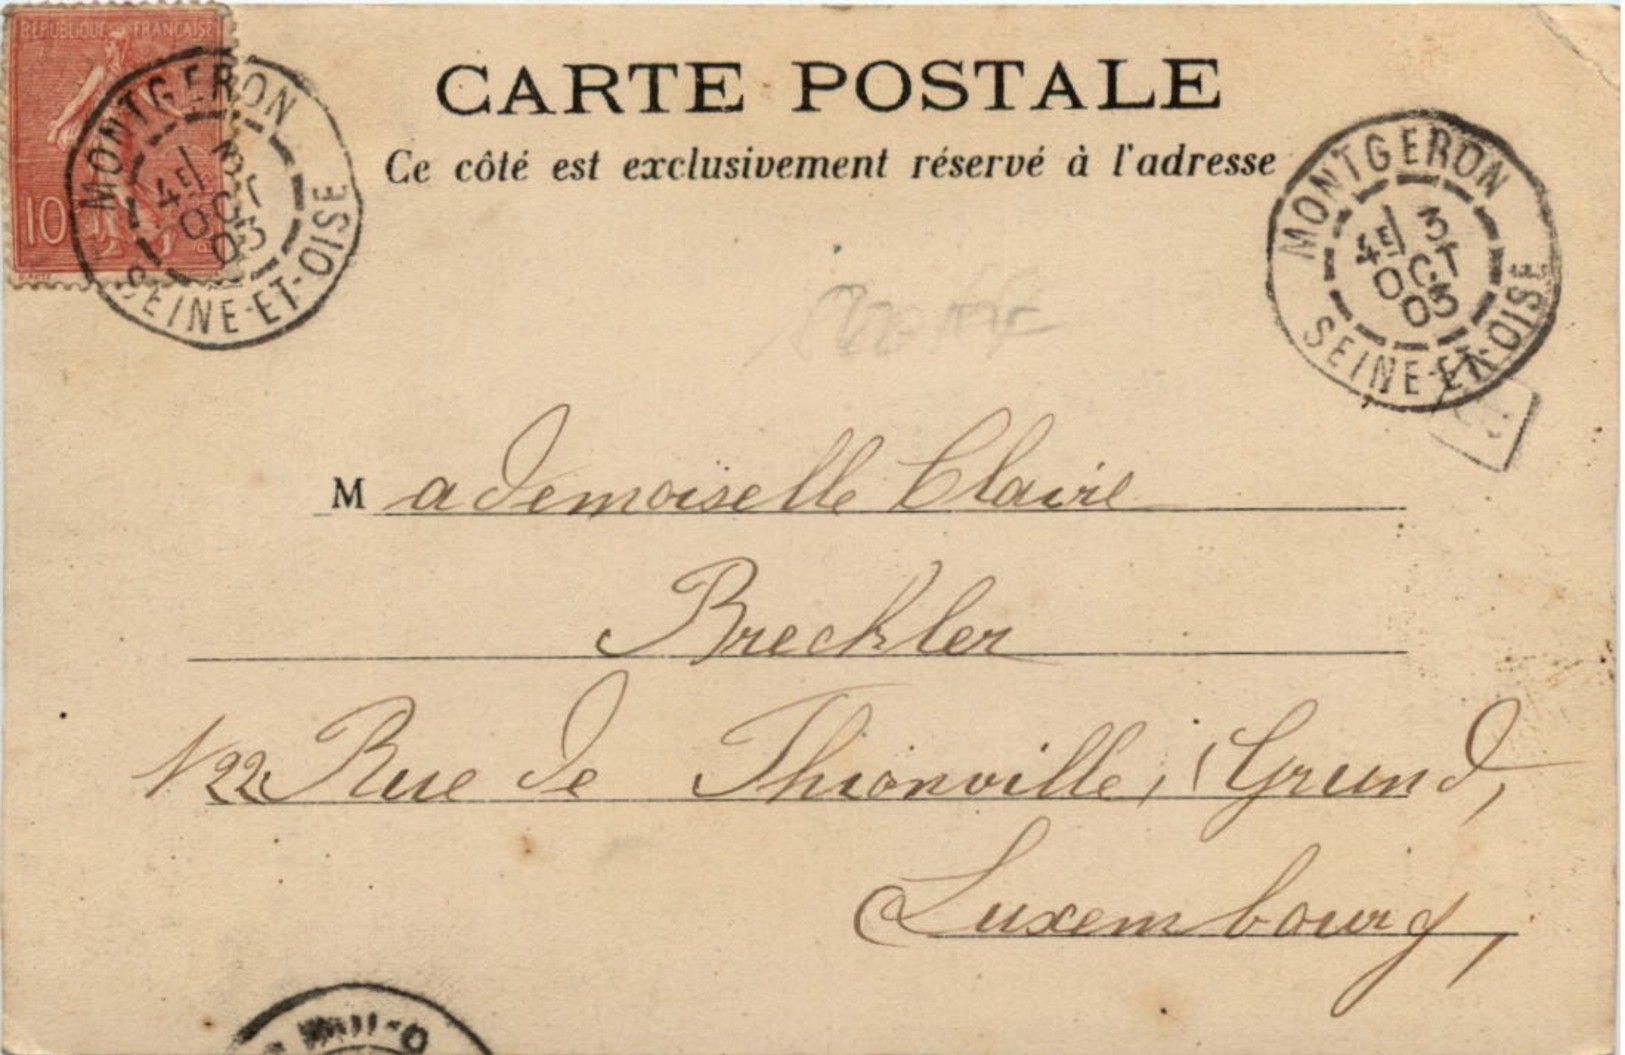 REPUBLIQUE FRANÇAISE
10
MONTGERON
4E 3
OCT
05
SEINE-ET-OISE
CARTE POSTALE
Ce côté est exclusivement réservé à l'adresse
MONTGERON
4E 3
OCT
05
SEINE-ET-OISE
Mademoiselle Claire
Breckler
122 Rue de Thionville, Grund,
Luxembourg,